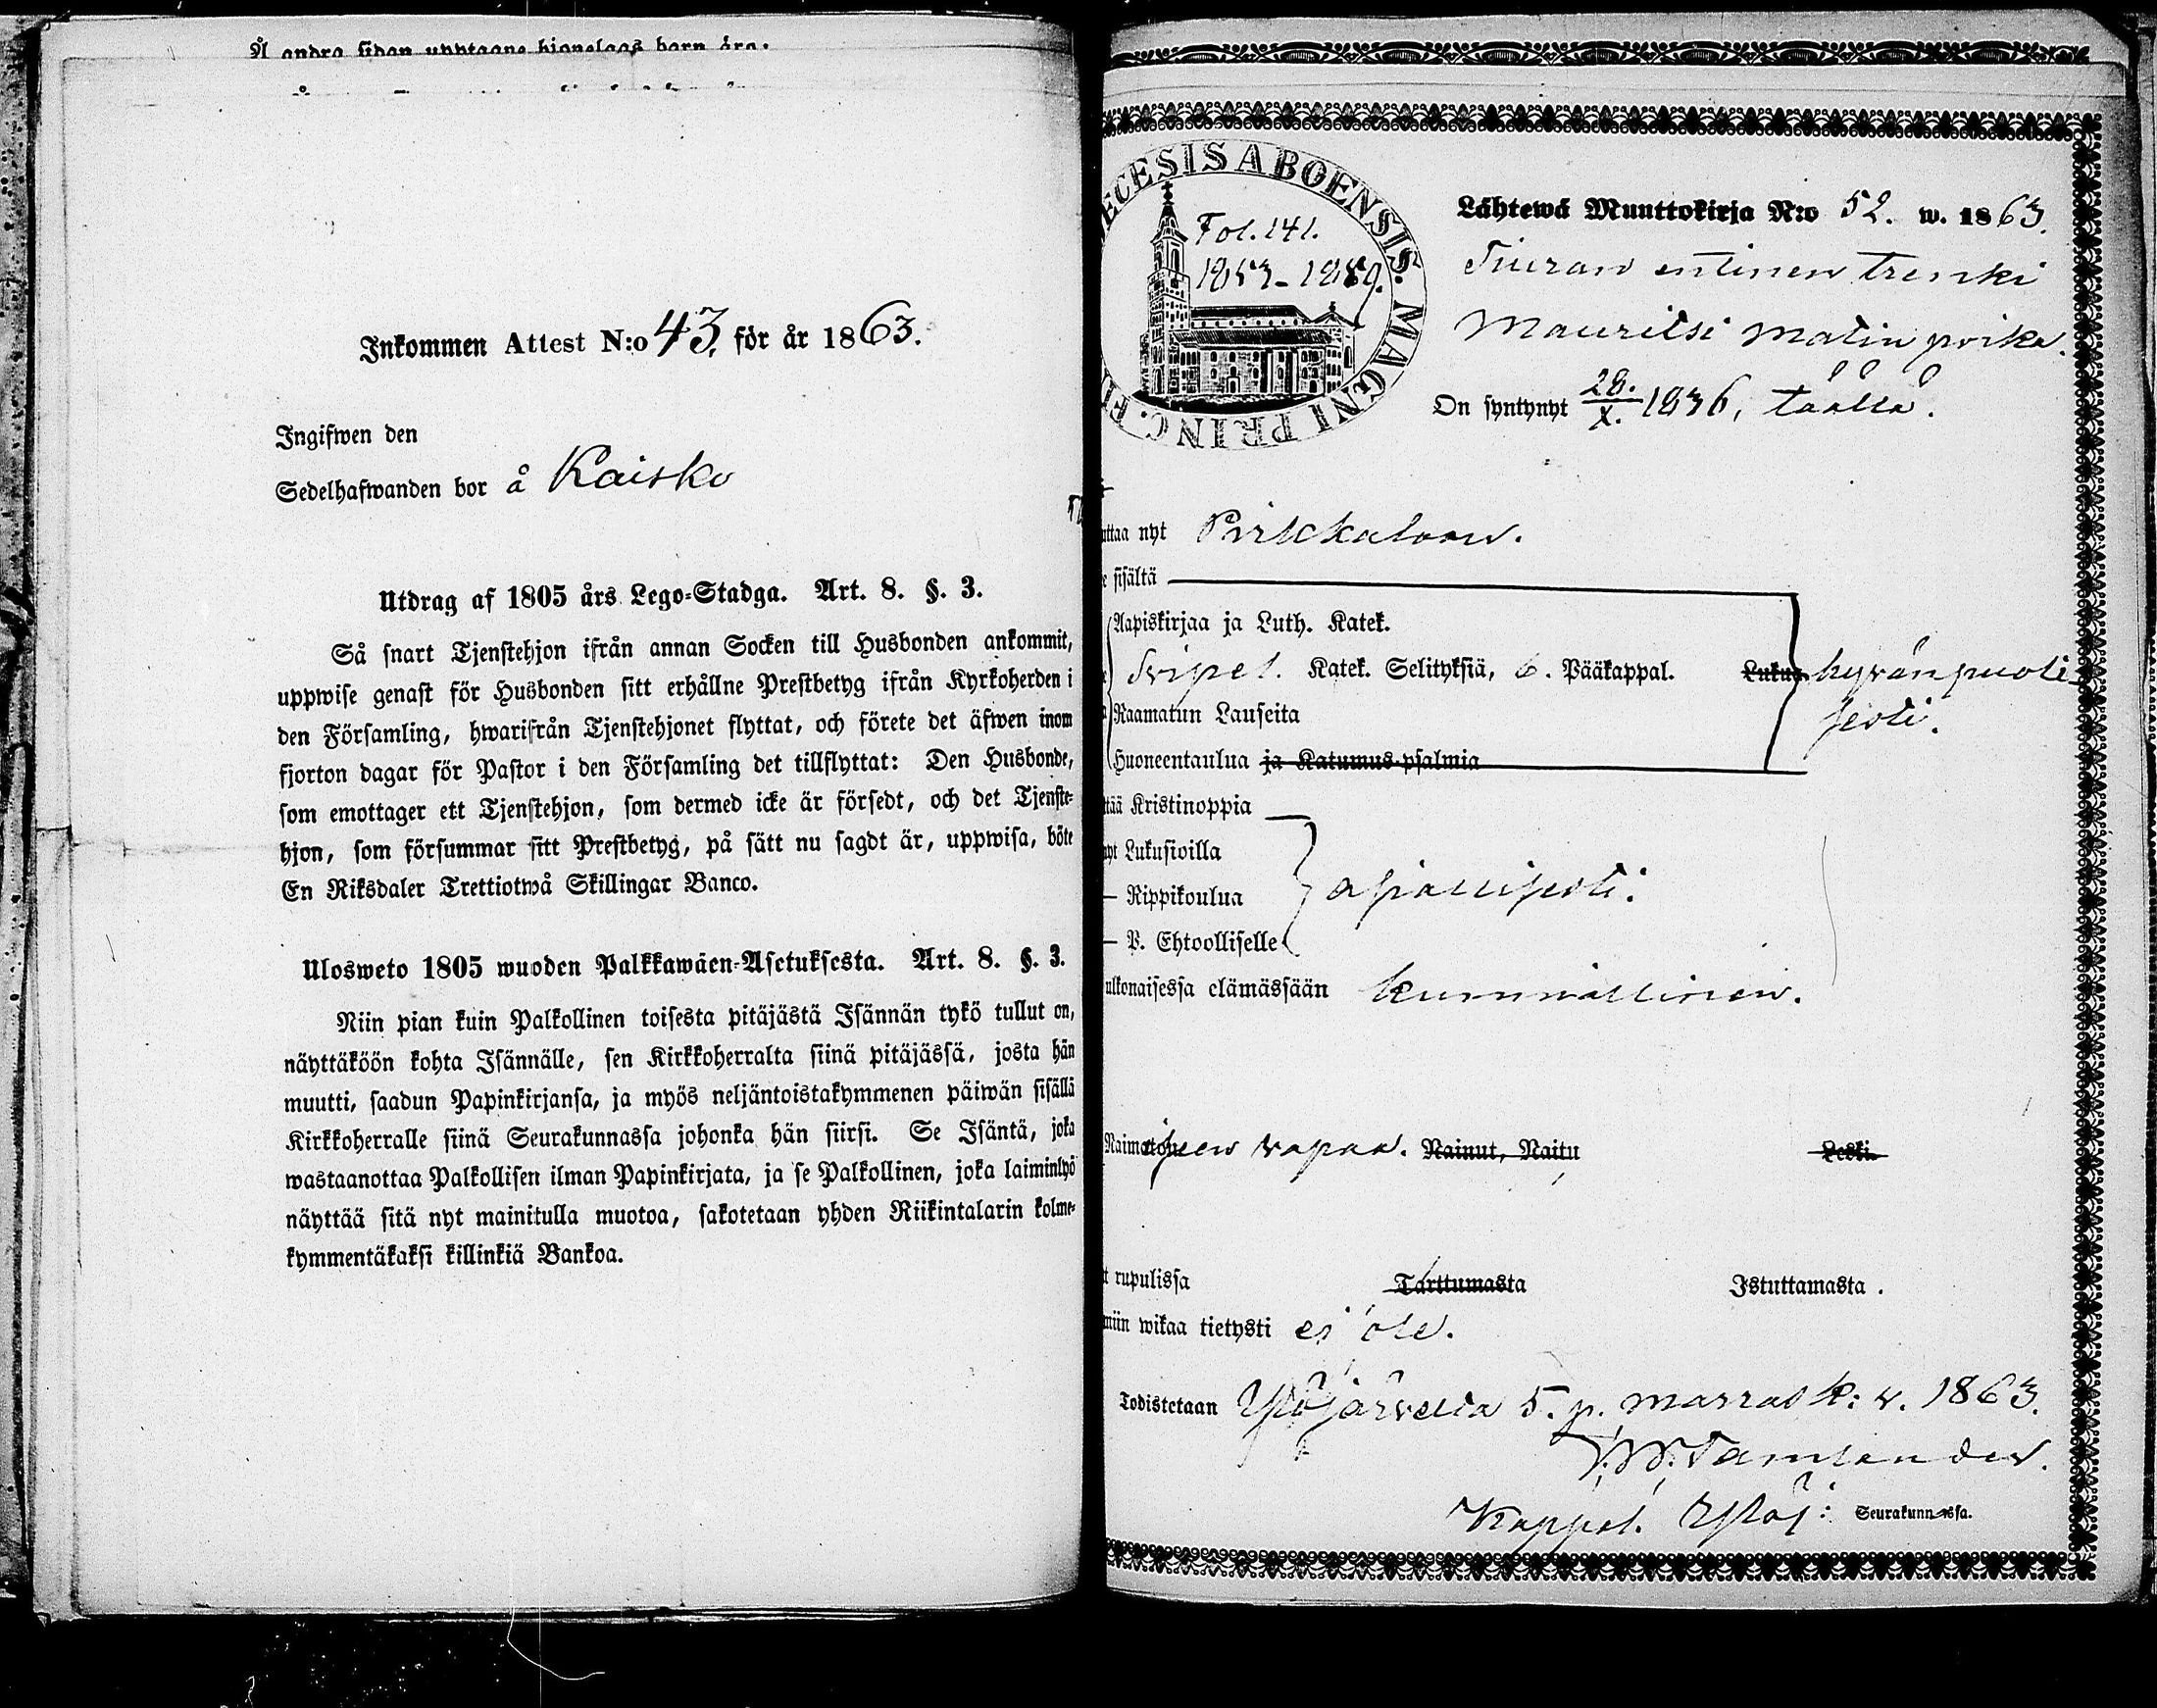 Å andra sidan upptagne hjonelags barn äro:
Inkommen Attest N:o 43. för år 1863.
Ingifwen den
Sedelhafwanden bor å Kaisko
Utdrag af 1805 års Lego-Stadga. Art. 8. §. 3.
Så snart Tjenstehjon ifrån annan Socken till Husbonden ankommit,
uppwise genast för Husbonden sitt erhållne Prestbetyg ifrån Kyrkoherden i
den Församling, hwarifrån Tjenstehjonet flyttat, och förete det äfwen inom
fjorton dagar för Pastor i den Församling det tillflyttat: Den Husbonde,
som emottager ett Tjenstehjon, som dermed icke är försedt, och det Tjenste-
hjon, som försummar sitt Prestbetyg, på sätt nu sagdt är, uppwisa, böte
En Riksdaler Trettiotwå Skillingar Banco.
Ulosweto 1805 wuoden Palkkawäen-Asetuksesta. Art. 8. §. 3.
Niin pian kuin Palkollinen toisesta pitäjästä Isännän tykö tullut on,
näyttäköön kohta Isännälle, sen Kirkkoherralta siinä pitäjässä, josta hän
muutti, saadun Papinkirjansa, ja myös neljäntoistakymmenen päiwän sisällä
Kirkkoherralle siinä Seurakunnassa johonka hän siirsi. Se Isäntä, joka
wastaanottaa Palkollisen ilman Papinkirjata, ja se Palkollinen, joka laiminlyö
näyttää sitä nyt mainitulla muotoa, sakotetaan yhden Riikintalarin kolme-
kymmentäkaksi killinkiä Bankoa.
ECESIS ABOENSIS. MAGNI PRINC. FI
Fol. 141.
1853-1859.
Lähtewä Muuttokirja N:o 52. w. 1863.
entinen trenki
Mauritsi Matin poika.
On syntynyt 28./X. 1836, täällä.
uttaa nyt Pirkkalaan.
e sisältä
Aapiskirjaa ja Luth. Katek.
Svipel. Katek. Selityksiä, 6. Pääkappal. Lukua hyvänpuoli-
Raamatun Lauseita sesti.
Huoneentaulua ja Katumus-psalmia
tää Kristinoppia
nyt Lukusioilla
— Rippikoulua ahkerasti.
— P. Ehtoolliselle
ulkonaisessa elämässään kunniallinen.
Naimiseen vapaa. Nainut, Naitu Leski
t rupulissa Tarttumasta Istuttamasta.
miin wikaa tietysti ei ole.
Todistetaan Ylöjärvellä 5. p. marrask: v. 1863.
Kappal. Ylöj: Seurakunnassa.